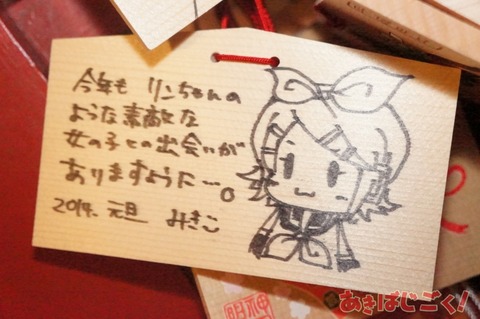 今年も リンちゃんの
ような素敵な
女の子との出会いが
ありますように…。
2014. 元旦 みきこ
神明
あきばじごく!